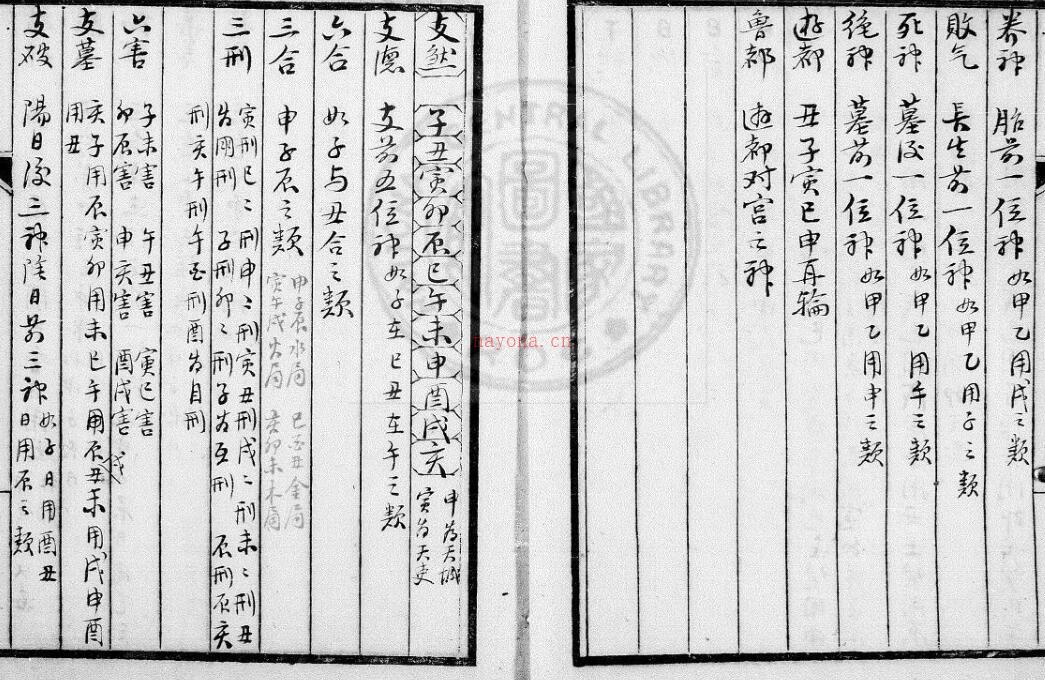 养神 胎前一位神如甲乙用戌之類
敗气 長生前一位神如甲乙用子之類
死神 墓後一位神如甲乙用午之類
絶神 墓前一位神如甲乙用申之類
遊都 丑子寅巳申再輪
魯都 遊都对宫之神
支煞 子丑寅卯辰巳午未申酉戌亥 申為天城 寅為天吏
支德 支前五位神如子在巳丑在午之類
六合 如子与丑合之類
三合 申子辰之類 申子辰水局 巳酉丑金局 寅午戌火局 亥卯未木局
三刑 寅刑巳巳刑申申刑寅丑刑戌戌刑未未刑丑
為朋刑 子刑卯卯刑子為互刑 辰刑辰亥
刑亥午刑午酉刑酉為自刑
六害 子未害 午丑害 寅巳害
卯辰害 申亥害 酉戌害
支墓 亥子用辰寅卯用未巳午用戌丑未用辰申酉
用丑
支破 陽日後三神陰日前三神如子日用酉丑
日用辰之類
nayona.cn
LIBRARY